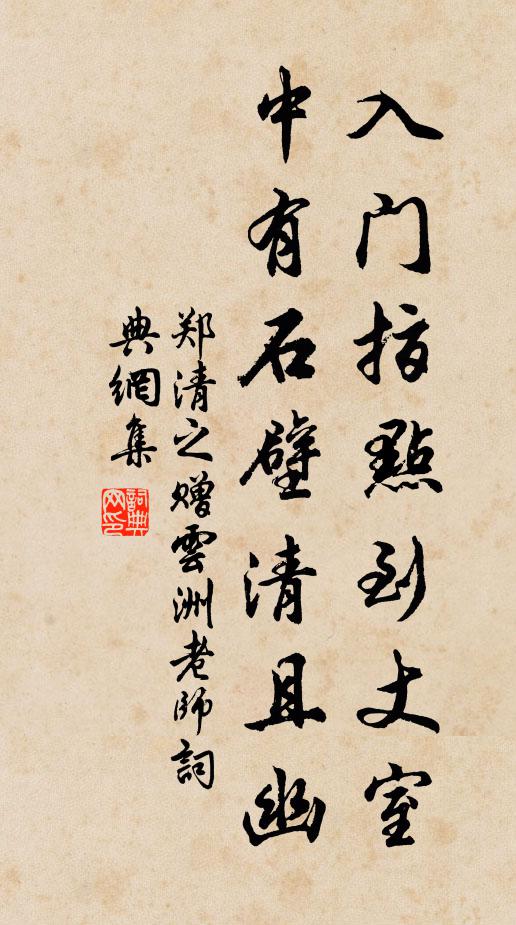 入門指點到丈室
中有石壁清且幽
郑清之赠雲洲老師詞
典網集
詞典
网印